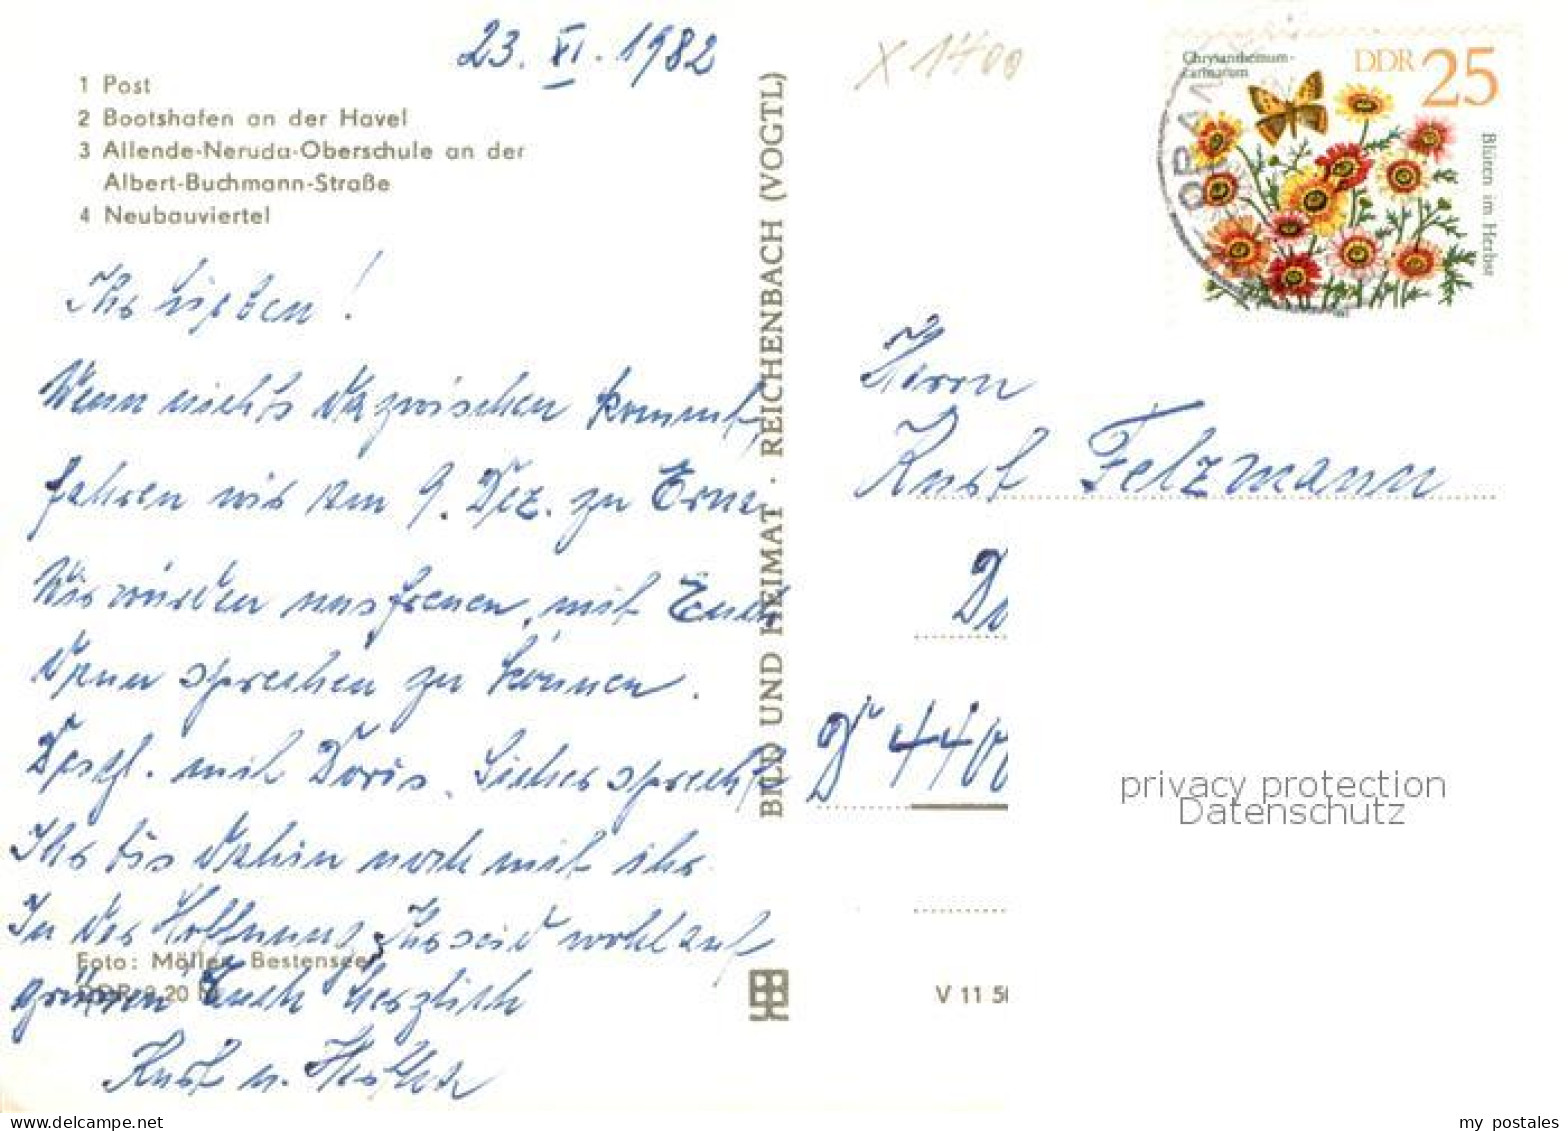 23. XI. 1982
1 Post
2 Bootshafen an der Havel
3 Allende-Neruda-Oberschule an der
Albert-Buchmann-Straße
4 Neubauviertel
Ihr Lieben!
Wenn nichts dazwischen kommt,
fahren wir am 9. Dez. zu Erna.
Wir würden uns freuen, mit Euch
dann sprechen zu können.
Desgl. mit Doris. Sicher sprecht
Ihr bis dahin noch mit ihr.
In der Hoffnung, Ihr seid wohlauf
grüßen Euch herzlich
Kurt u. Hertha
Foto: Möller, Bestensee
BILD UND HEIMAT · REICHENBACH (VOGTL)
V 11 50
X 1400
Chrysanthemum-
carinatum
DDR 25
Blüten im Herbst
ORA
Herrn
Kurt Felzmann
D 4400
privacy protection
Datenschutz
my postales